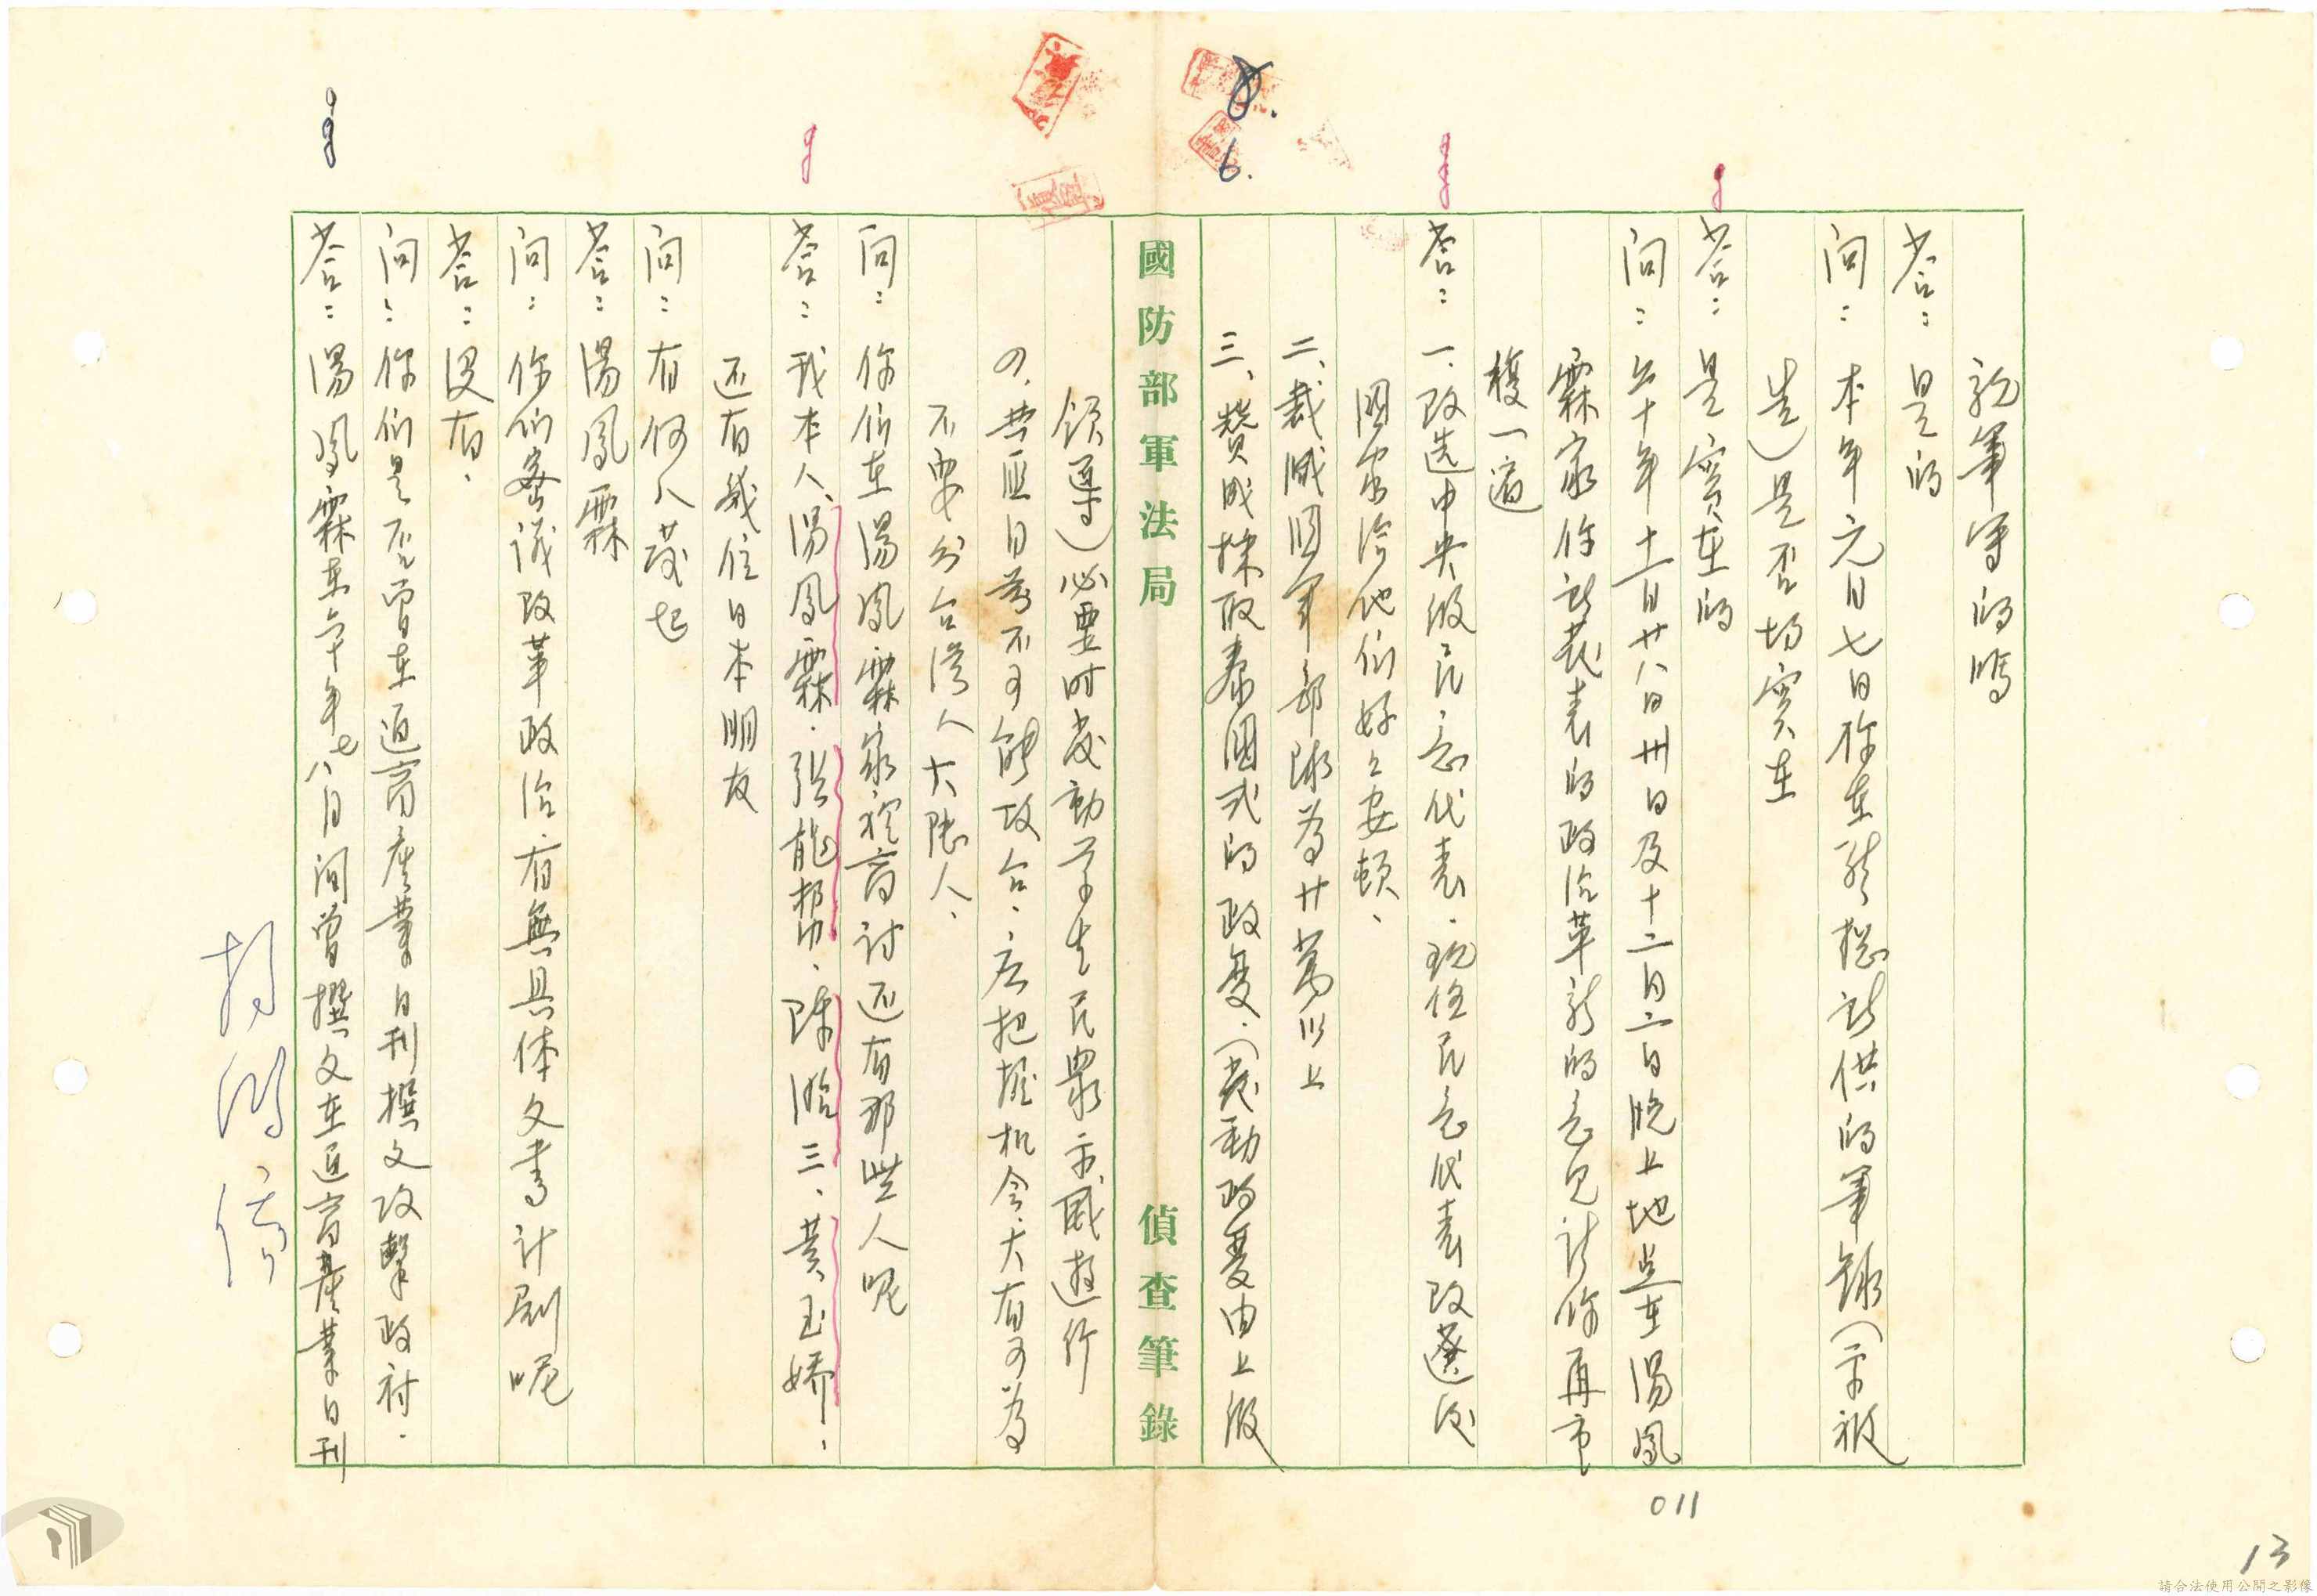 親筆寫的嗎
答：是的
問：本年元月七日你在警總所供的筆錄（示被
告）是否切實在
答：是實在的
問：六十年十一月廿八日卅日及十二月二日晚上地点在湯鳳
霖家你所發表的政治革新的意見請你再重
複一遍
答：一、改选中央級民意代表．現任民意代表改選後
國家給他們好々安頓、
二、裁減國軍部隊為廿萬以上
三、贊成採取泰國式的政变．（發動政變由上級
國防部軍法局 偵查筆錄
領導）必要时發動学生民眾示威遊行
四、共匪目前不可能攻台、应把握机会、大有可為
不要分台灣人大陸人、
問：你们在湯鳳霖家裡商討还有那些人呢
答：我本人、湯鳳霖．張龍邦、陳 三、黄玉嬌．
还有幾位日本朋友
問：有何人發起
答：湯鳳霖
問：你们密議改革政治．有無具体文書計劃呢
答：没有．
問：你们是否曾在近商產業日刊撰文攻擊政府．
答：湯鳳霖在六十年七八月间曾撰文在近商產業日刊
8.
6.
011
13
請合法使用公開之影像